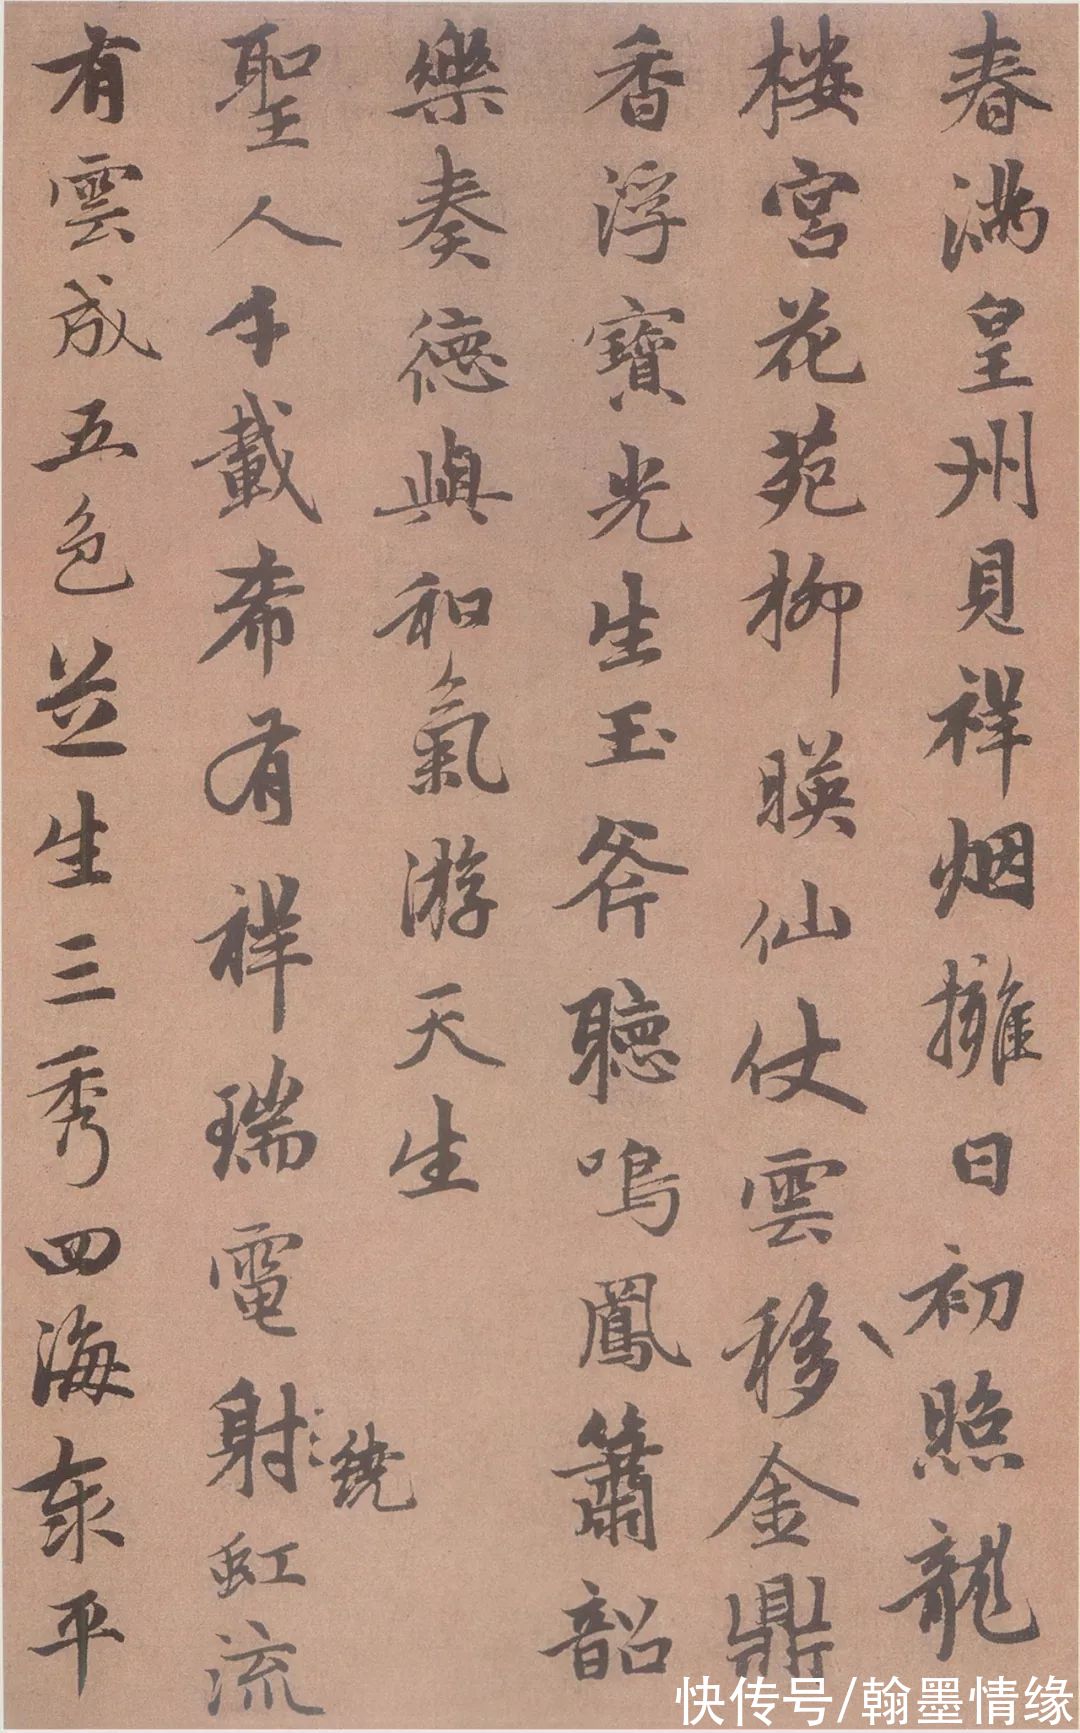 春满皇州見祥烟擁日初照龍
楼宮花苑柳暎仙仗雲移金鼎
香浮寶光生玉斧聽鳴鳳簫韶
樂奏德與和氣游天生
聖人千載希有祥瑞電射虹流
繞
有雲成五色芝生三秀四海泰平
快传号/翰墨情缘